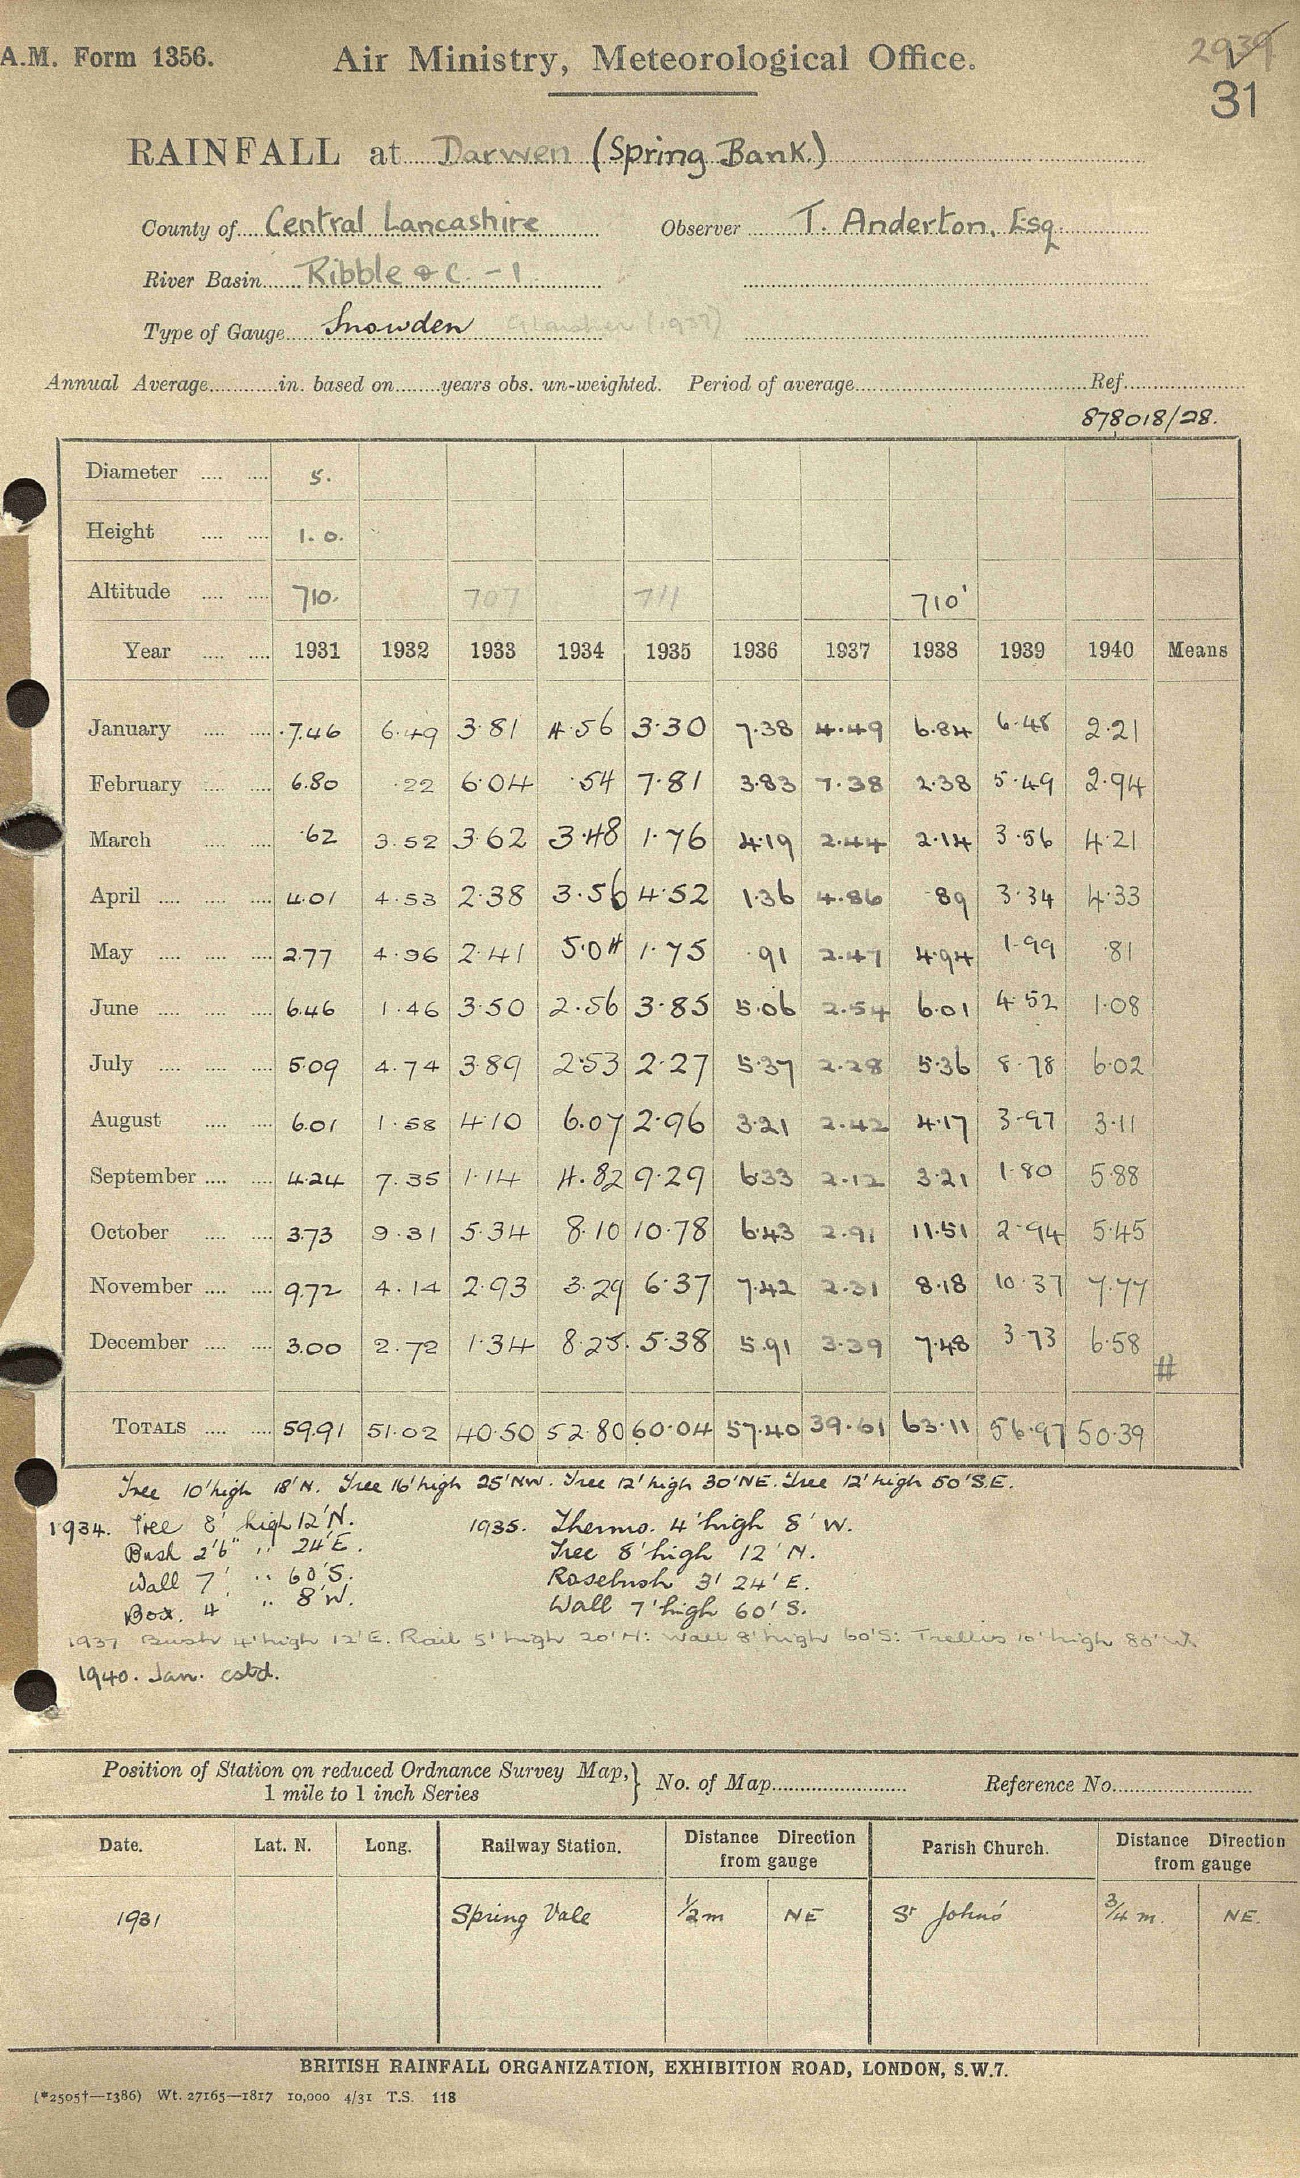 A.M. Form 1356.
Air Ministry, Meteorological Office.
2939
31
RAINFALL at Darwen (Spring Bank.)
County of Central Lancashire Observer T. Anderton, Esq.
River Basin Ribble &c. - 1.
Type of Gauge Snowden Glaisher (1937)
Annual Average in. based on years obs. un-weighted. Period of average Ref.
878018/28.
Diameter 5.
Height 1.0.
Altitude 710. 707 711 710'
Year 1931 1932 1933 1934 1935 1936 1937 1938 1939 1940 Means
January 7.46 6.49 3.81 4.56 3.30 7.38 4.49 6.84 6.48 2.21
February 6.80 .22 6.04 .54 7.81 3.83 7.38 2.38 5.49 2.94
March .62 3.52 3.62 3.48 1.76 4.19 2.44 2.14 3.56 4.21
April 4.01 4.53 2.38 3.56 4.52 1.36 4.86 .89 3.34 4.33
May 2.77 4.96 2.41 5.04 1.75 .91 2.47 4.94 1.99 .81
June 6.46 1.46 3.50 2.56 3.85 5.06 2.54 6.01 4.52 1.08
July 5.09 4.74 3.89 2.53 2.27 5.37 2.28 5.36 8.78 6.02
August 6.01 1.58 4.10 6.07 2.96 3.21 2.42 4.17 3.97 3.11
September 4.24 7.35 1.14 4.82 9.29 6.33 2.12 3.21 1.80 5.88
October 3.73 9.31 5.34 8.10 10.78 6.43 2.91 11.51 2.94 5.45
November 9.72 4.14 2.93 3.29 6.37 7.42 2.31 8.18 10.37 7.77
December 3.00 2.72 1.34 8.25. 5.38 5.91 3.39 7.48 3.73 6.58 #
TOTALS 59.91 51.02 40.50 52.80 60.04 57.40 39.61 63.11 56.97 50.39
Tree 10' high 18' N. Tree 16' high 25' NW. Tree 12' high 30' NE. Tree 12' high 50' S.E.
1934. Tree 8' high 12' N. 1935. Thermo. 4' high 8' W.
Bush 2'6" " 24' E. Tree 8' high 12' N.
Wall 7' " 60' S. Rosebush 3' 24' E.
Box. 4' " 8' W. Wall 7' high 60' S.
1937 Bush 4' high 12' E. Rail 5' high 20' N: Wall 8' high 60' S: Trellis 10' high 80' W.
1940. Jan. estd.
Position of Station on reduced Ordnance Survey Map, } No. of Map Reference No.
1 mile to 1 inch Series
Date. Lat. N. Long. Railway Station. Distance Direction from gauge Parish Church. Distance Direction from gauge
1931 Spring Vale 1/2 m NE St John's 3/4 m. NE.
BRITISH RAINFALL ORGANIZATION, EXHIBITION ROAD, LONDON, S.W.7.
(*2505†—1386) Wt. 27165—1817 10,000 4/31 T.S. 118